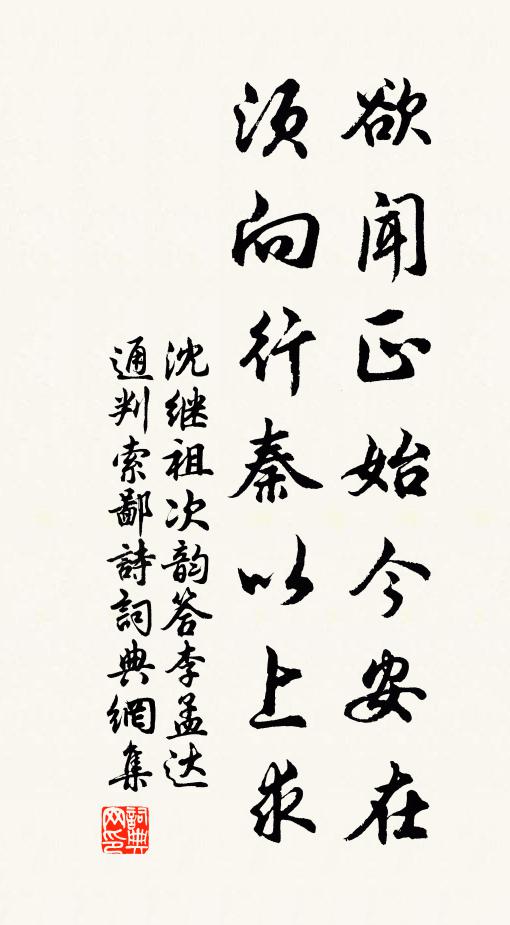 欲闻正始今安在
须向行秦以上求
沈继祖次韵答李孟达
通判索鄙詩詞典網集
詞典
网印